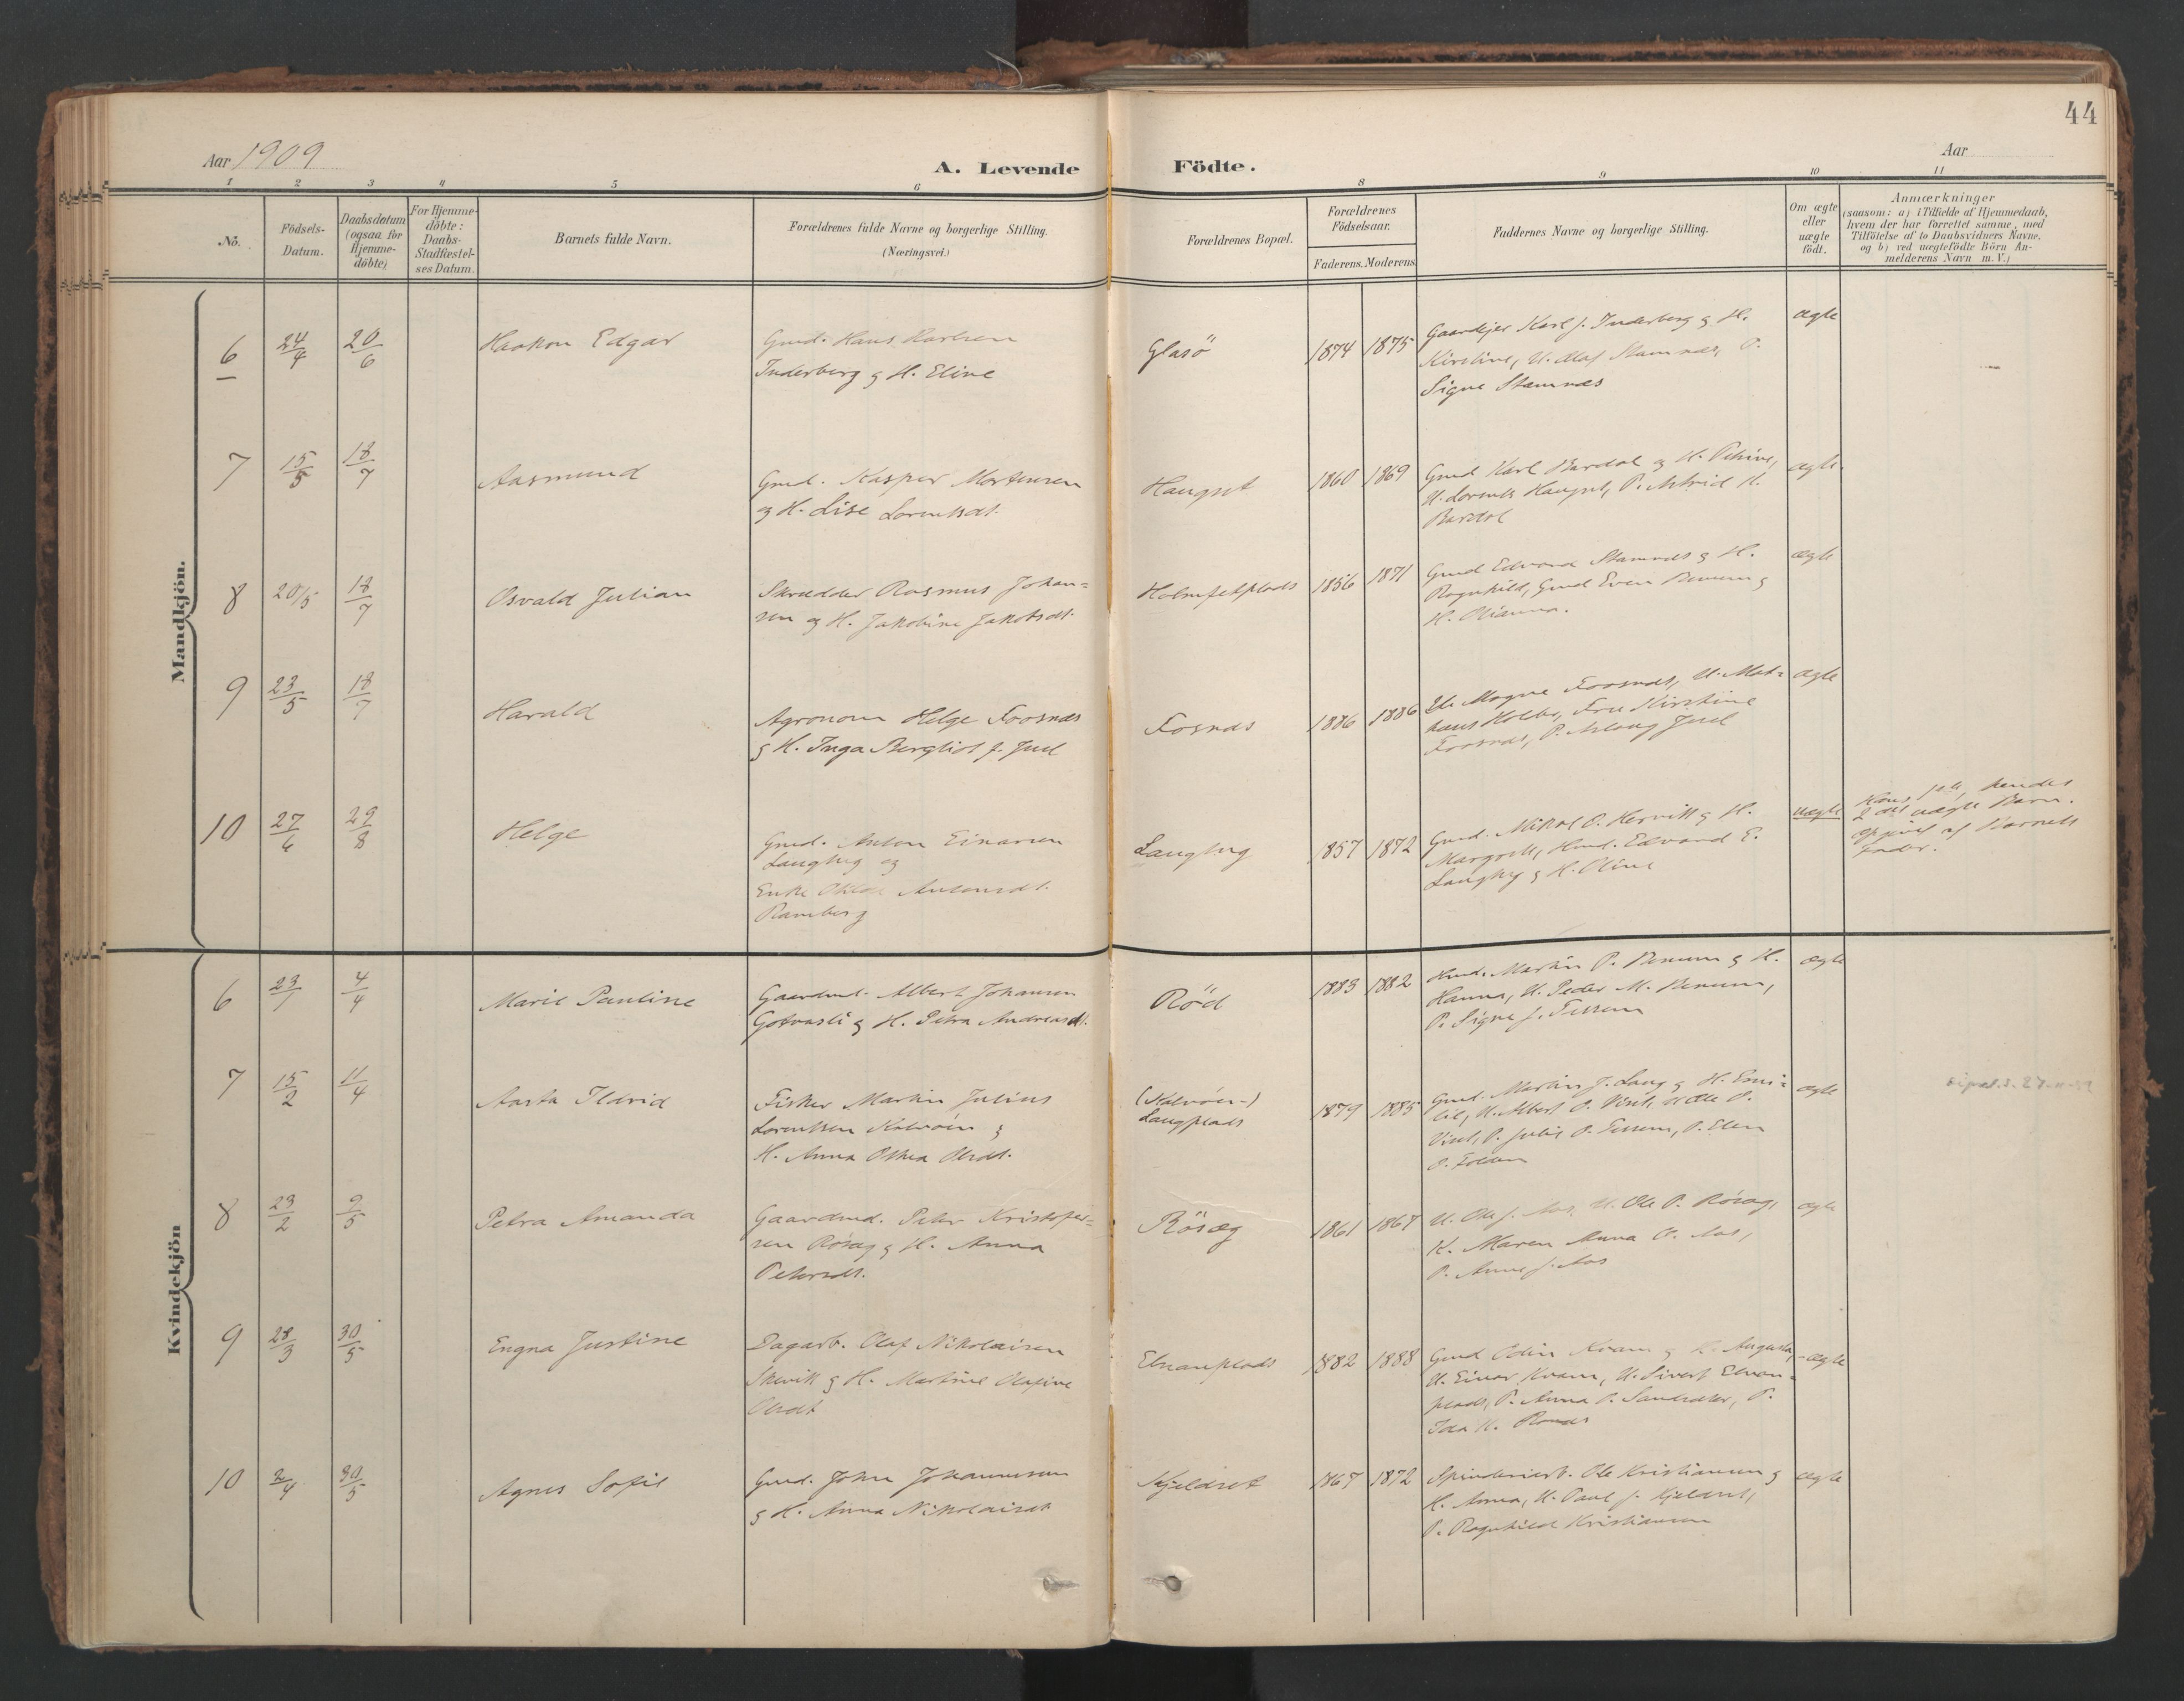 44
Aar 1909
A. Levende Födte.
Aar
1 2 3 4 5 6 8 9 10 11
No.
Födsels-
Datum.
Daabsdatum
(ogsaa for
Hjemme-
döbte)
For Hjemme-
döbte:
Daabs-
Stadfæstel-
ses Datum.
Barnets fulde Navn.
Forældrenes fulde Navne og borgerlige Stilling.
(Næringsvei.)
Forældrenes Bopæl.
Forældrenes
Födselsaar.
Faderens. Moderens.
Faddernes Navne og borgerlige Stilling.
Om ægte
eller
uægte
födt.
Anmærkninger
(saasom: a) i Tilfælde af Hjemmedaab,
hvem der har forrettet samme, med
Tilföielse af to Daabsvidners Navne,
og b) ved uægtefödte Börn An-
melderens Navn m. V.)
Mandkjön.
6 24/4 20/6 Haakon Edgar
Gmd. Hans Karlsen
Inderberg g H. Eline
Glasö 1874 1875
Gaardejer Karl J. Inderberg g H.
Kirstine, U. Olaf Stamnæs, P.
Signe Stamnæs
ægte
7 15/5 18/7 Aasmund
Gmd. Kasper Mortensen
og H. Lise Lorentsdt.
Haugset 1860 1869
Gmd Karl Bardal og H. Petrine,
U. Lorents Haugset, P. Astrid K.
Bardal
ægte
8 20/5 18/7 Osvald Julian
Skrædder Rasmus Johan-
sen og H. Jakobine Jakobsdt.
Holmsetplads 1856 1871
Gmd Edvard Stamnæs g H.
Ragnhild, Gmd Even Benum g
H. Olianna.
ægte
9 23/5 18/7 Harald
Agronom Helge Foosnæs
g H. Inga Bergliot f. Juel
Fosnæs 1886 1886
U. Magne Foosnæs, U. Mat-
hæus Holbø, Fru Kirstine
Foosnæs, P. Aslaug Juel
ægte
10 27/6 29/8 Helge
Gmd. Anton Einarsen
Langhyg og
Enke Antonsdt.
Ramberg
Langhyg 1857 1872
Gmd. Mikal O. Hervik g H.
Margrete, Hmd. Edvard E.
Langhyg g H. Oline
uægte
Hans 1ste, hendes
2det uægte Barn.
opgivet af Barnets
Fader.
Kvindekjön
6 23/1 4/4 Marie Pauline
Gaardmd. Albert Johansen
Gotvasli g H. Petra Andreasdt.
Röd 1883 1882
Hmd. Martin P. Benum g H.
Hanna, U. Peder M. Benum,
P. Signe J. Tessem
ægte
7 15/2 11/4 Aasta Ildrid
Fisker Martin Julius
Lorentsen Kalvöen g
H. Anna Oldt.
(Kalvöen-)
Langplads 1879 1885
Gmd. Martin J. Lang g H. Emi-
lie, U. Albert O. Vist, U Ole O.
Vist, P. Julie P. Tessem, P. Elen
O. Folden
ægte
8 23/2 9/5 Petra Amanda
Gaardmd. Peter Kristofer-
sen Rösæg g H. Anna
Petersdt.
Rösæg 1861 1867
U. Ole J. Aas, U. Ole P. Rösæg,
K. Maren Anna O. Aas,
P. Anne J. Aas
ægte
9 28/3 30/5 Engna Justine
Dagarb. Olaf Nikolaisen
Skevik g H. Martine Olafine
Olsdt
Elvranplads 1882 1888
Gmd Odin Kvam g H. Augusta,
U. Einar Kvam, U. Sivert Elvran-
plads, P. Anna P. P.
Ida K.
ægte
10 2/4 30/5 Agnes Sofie
Gmd. Johan Johannessen
g H. Anna Nikolaisdt
Kjeldset 1867 1872
Spinderiarb. Ole Kristiansen g
H. Anna, U. Paul J. Kjeldset,
P. Ragnhild Kristiansen
ægte